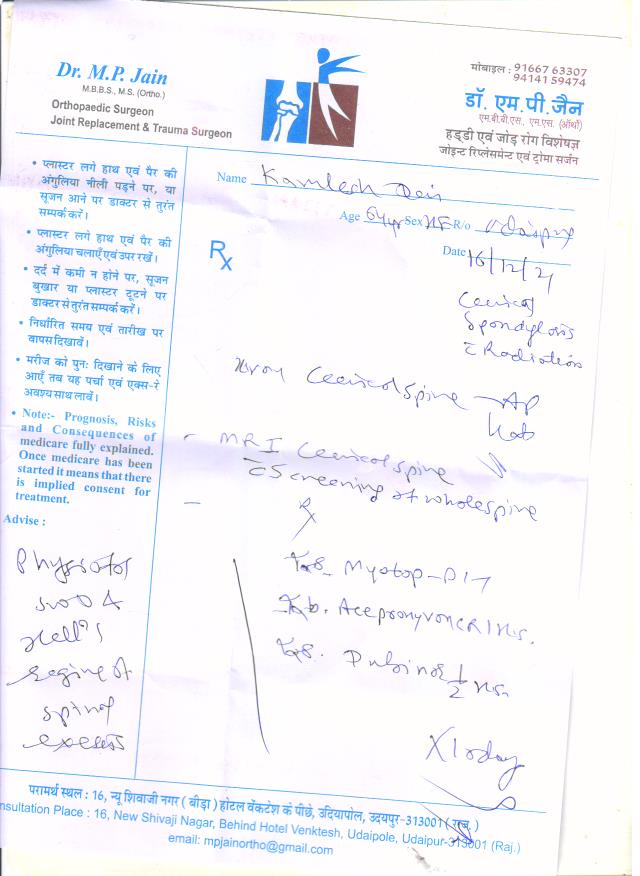 Dr. M.P. Jain
M.B.B.S., M.S. (Ortho.)
Orthopaedic Surgeon
Joint Replacement & Trauma Surgeon
मोबाइल : 91667 63307
94141 59474
डॉ. एम.पी.जैन
एम.बी.बी.एस., एम.एस. (ऑर्थो)
हड्डी एवं जोड़ रोग विशेषज्ञ
जोइन्ट रिप्लेसमेन्ट एवं ट्रोमा सर्जन
• प्लास्टर लगे हाथ एवं पैर की
अंगुलिया नीली पड़ने पर, या
सूजन आने पर डाक्टर से तुरंत
सम्पर्क करें।
• प्लास्टर लगे हाथ एवं पैर की
अंगुलिया चलाएँ एवं उपर रखें।
• दर्द में कमी न होने पर, सूजन
बुखार या प्लास्टर टूटने पर
डाक्टर से तुरंत सम्पर्क करें।
• निर्धारित समय एवं तारीख पर
वापस दिखावें।
• मरीज को पुनः दिखाने के लिए
आएँ तब यह पर्चा एवं एक्स-रे
अवश्य साथ लावें।
• Note:- Prognosis, Risks
and Consequences of
medicare fully explained.
Once medicare has been
started it means that there
is implied consent for
treatment.
Advise :
spinal
Name Kamlesh
Age 64 yr Sex R/o
Date 16/12/21
Rx
Cervical
Spondylosis
Radiation
Cervical spine AP
MRI Cervical spine
Screening of wholespine
Rx
Tab. Myotop-D
Tab.
Tab. 1/2
X 10 day
परामर्श स्थल : 16, न्यू शिवाजी नगर ( बीड़ा ) होटल वेंकटेश के पीछे, उदियापोल, उदयपुर-313001 (राज.)
nsultation Place : 16, New Shivaji Nagar, Behind Hotel Venktesh, Udaipole, Udaipur-313001 (Raj.)
email: mpjainortho@gmail.com